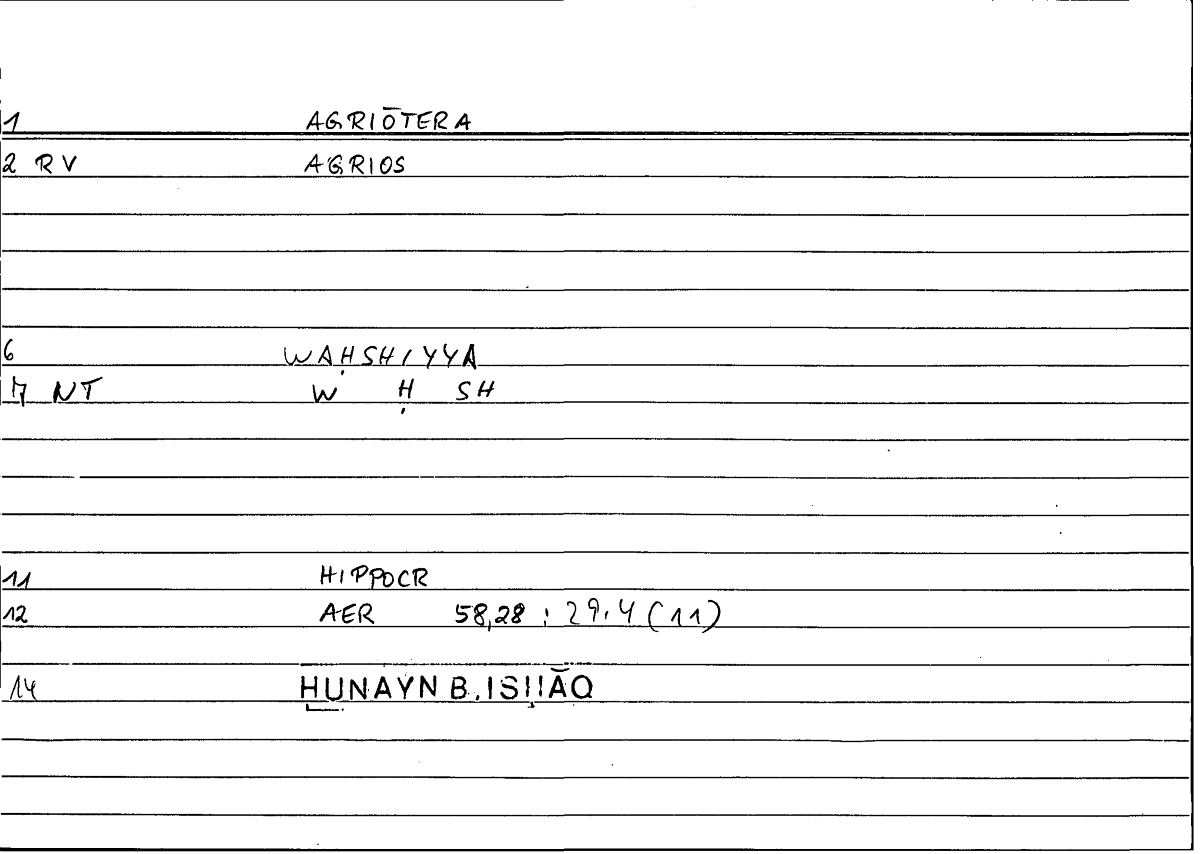 1 AGRIŌTERA
2 RV AGRIOS
6 WAḤSHIYYA
17 NT W Ḥ SH
11 HIPPOCR
12 AER 58,28 : 29,4 (11)
14 ḤUNAYN B. ISḤĀQ